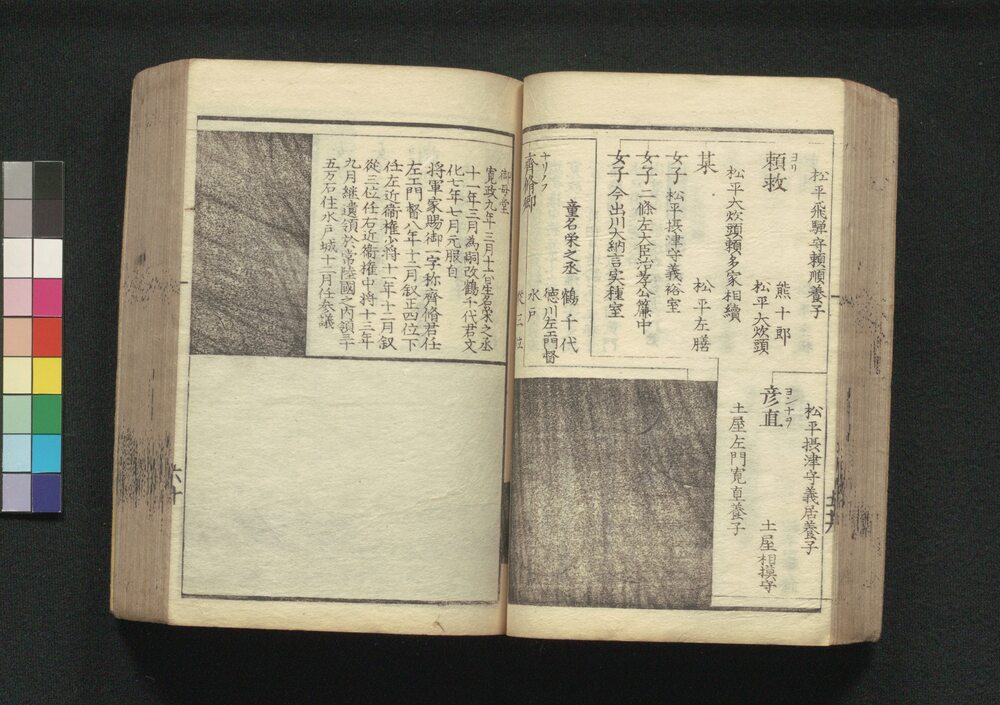 松平飛騨守頼順養子
ヨリ
頼救
熊十郎
松平大炊頭
松平大炊頭頼多家相續
某
松平左膳
女子 松平摂津守義裕室
女子 二條左大臣治孝公簾中
女子 今出川大納言実種室
松平摂津守義居養子
ヨシナヲ
彦直
土屋相摸守
土屋左門寛直養子
童名栄之丞
鶴千代
徳川左エ門督
水戸
從三位
ナリノフ
齊脩卿
御母堂
寛政九年三月十一日生名栄之丞
十一年三月為嗣改鶴千代君文
化七年七月元服自
将軍家賜御一字称齊脩君任
左エ門督八年十二月叙正四位下
任左近衞權少将十一年十二月叙
從三位任右近衞權中将十三年
九月継遺領於常陸國之内領三十
五万石住水戸城十二月任参議
六十